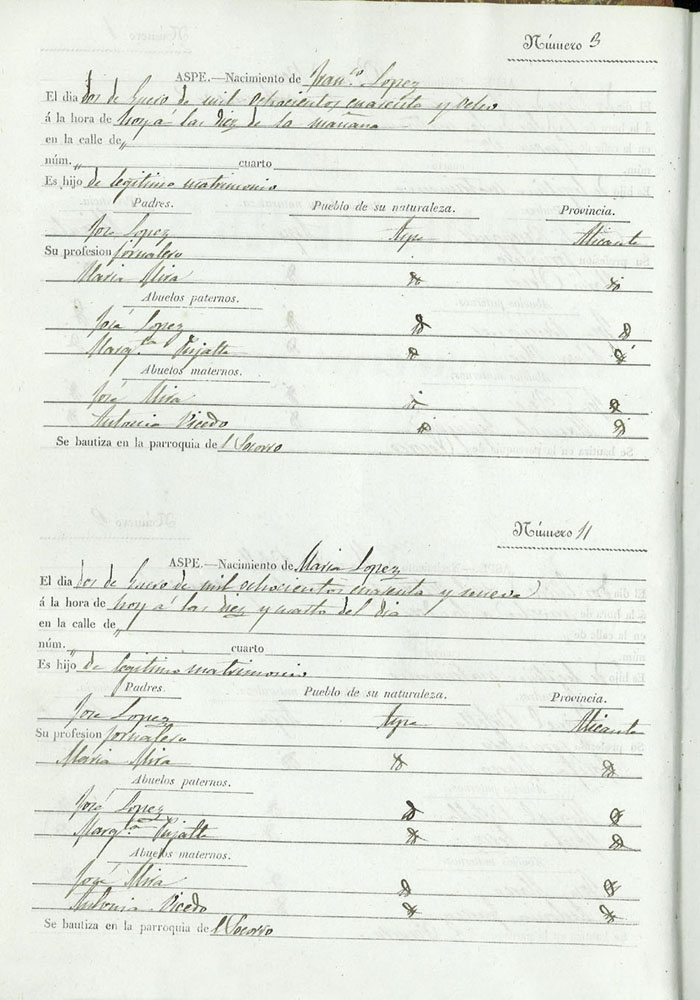 Número 3
ASPE.—Nacimiento de Fran.co Lopez
El dia dos de Enero de mil ochocientos cuarenta y ocho
á la hora de hoy á las diez de la mañana
en la calle de „
núm. „ cuarto
Es hijo de legitimo matrimonio
Padres. Pueblo de su naturaleza. Provincia.
José Lopez Aspe Alicante
Su profesion jornalero
Maria Mira
Abuelos paternos.
José Lopez
Marg.ta Pujalte
Abuelos maternos.
José Mira
Antonia Vicedo
Se bautiza en la parroquia de l Socorro
Número 4
ASPE.—Nacimiento de Maria Lopez
El dia dos de Enero de mil ochocientos cuarenta y nueve
á la hora de hoy á las diez y cuarto del dia
en la calle de „
núm. cuarto
Es hijo de legitimo matrimonio
Padres. Pueblo de su naturaleza. Provincia.
José Lopez Aspe Alicante
Su profesion jornalero
Maria Mira
Abuelos paternos.
José Lopez
Marg.ta Pujalte
Abuelos maternos.
José Mira
Antonia Vicedo
Se bautiza en la parroquia de l Socorro